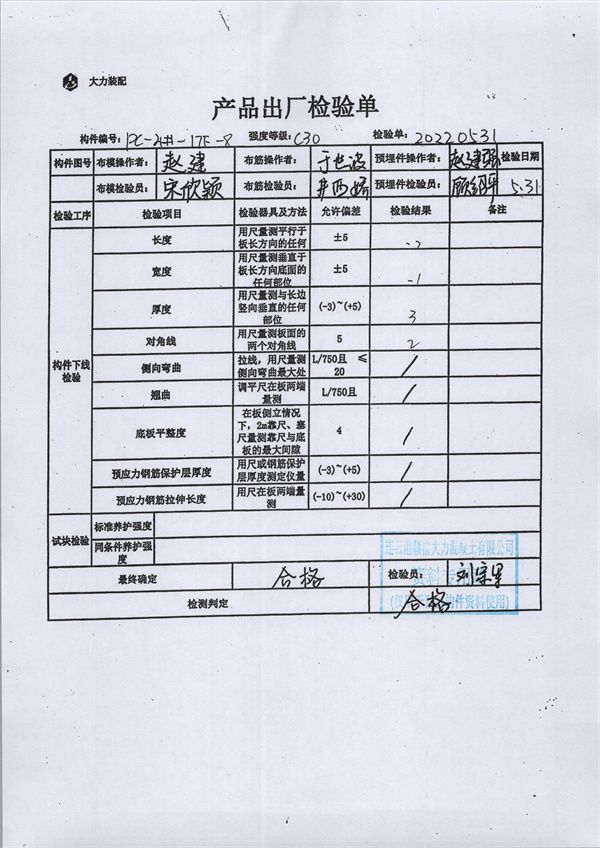 大力装配
产品出厂检验单
构件编号: PC-2#-17F-8 强度等级: C30 检验单: 20220531
构件图号 布模操作者: 赵建 布筋操作者: 预埋件操作者: 赵建强 检验日期
布模检验员: 宋欣颖 布筋检验员: 预埋件检验员: 5.31
检验工序 检验项目 检验器具及方法 允许偏差 检验结果 备注
构件下线检验
长度 用尺量测平行于板长方向的任何 ±5 -2
宽度 用尺量测垂直于板长方向底面的任何部位 ±5 -1
厚度 用尺量测与长边竖向垂直的任何部位 (-3)~(+5) 3
对角线 用尺量测板面的两个对角线 5 2
侧向弯曲 拉线,用尺量测侧向弯曲最大处 L/750且 ≤20 /
翘曲 调平尺在板两端量测 L/750且 /
底板平整度 在板侧立情况下,2m靠尺、塞尺量测靠尺与底板的最大间隙 4 /
预应力钢筋保护层厚度 用尺或钢筋保护层厚度测定仪量 (-3)~(+5) /
预应力钢筋拉伸长度 用尺在板两端量测 (-10)~(+30) /
试块检验 标准养护强度
同条件养护强度
连云港赣榆大力混凝土有限公司
最终确定 合格 检验员: 刘宗军
资料专用
检测判定 合格
构件资料使用)